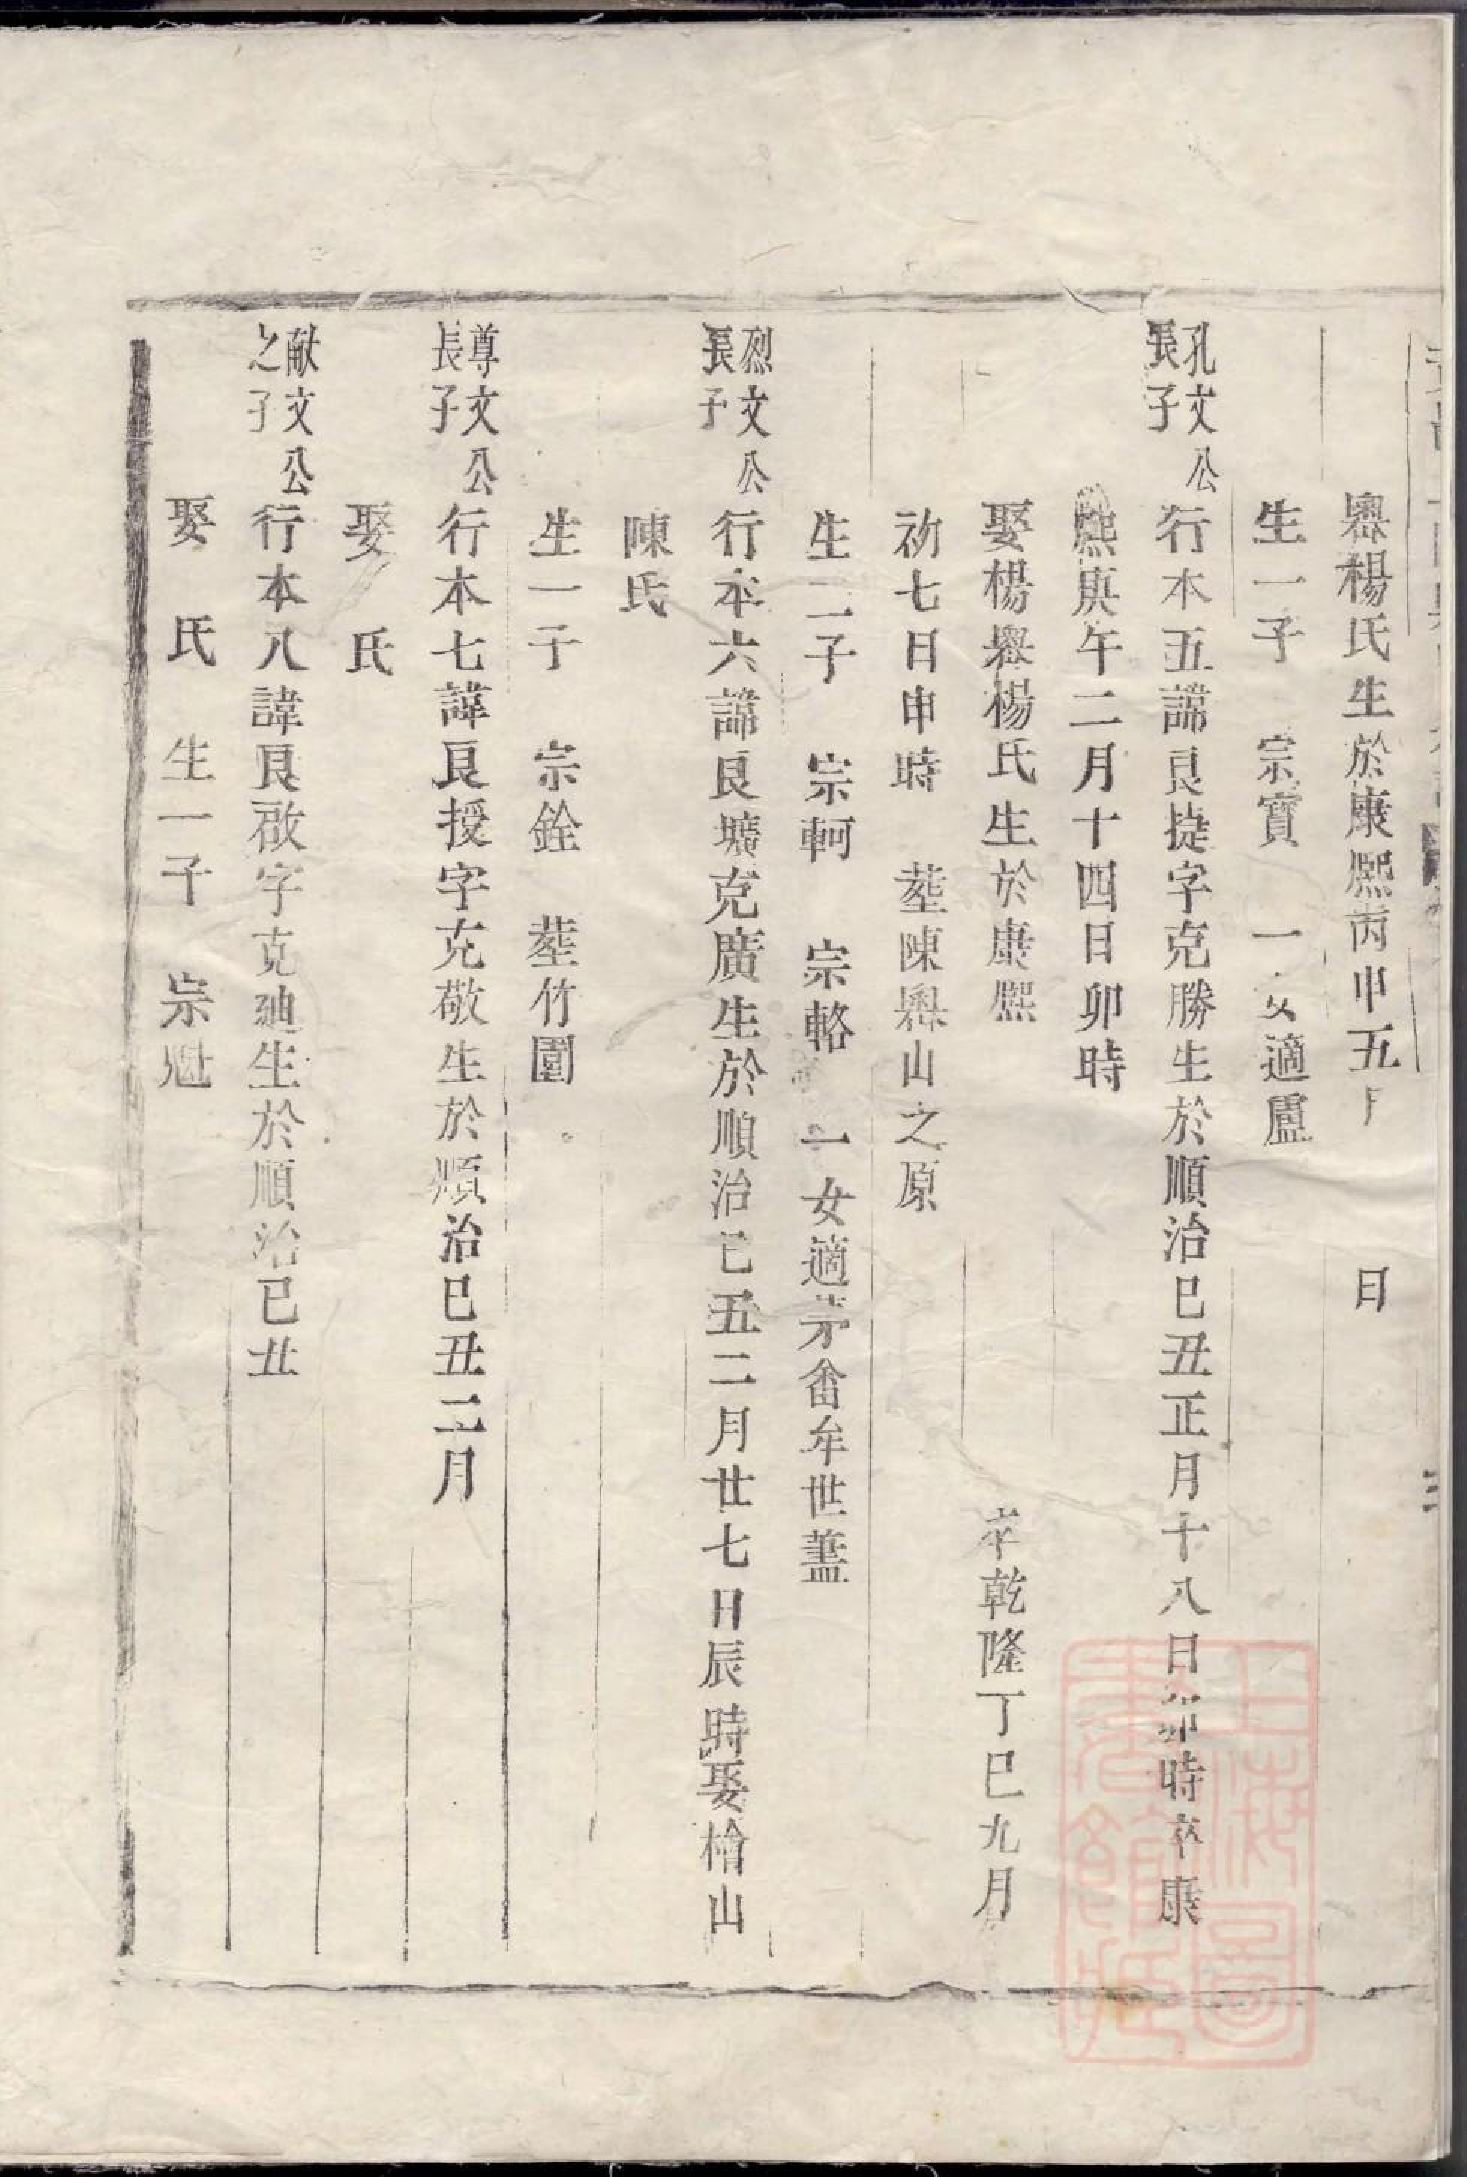 嶴楊氏生於康熙丙申五月　日
生一子　宗寶　一女適盧
孔文公長子　行本五諱良捷字克勝生於順治己丑正月十八日卯時卒康
熙庚午二月十四日卯時
娶楊嶴楊氏生於康熙　卒乾隆丁巳九月
初七日申時　葬陳嶴山之原
生二子　宗軻　宗輅　一女適茅畬牟世蓋
烈文公長子　行本六諱良壙克廣生於順治己丑二月廿七日辰時娶檜山
陳氏
生一子　宗銓　葬竹園
尊文公長子　行本七諱良授字克敬生於順治巳丑二月
娶　氏
献文公之子　行本八諱良啟字克廸生於順治己丑
娶　氏　生一子　宗
上海圖書館藏